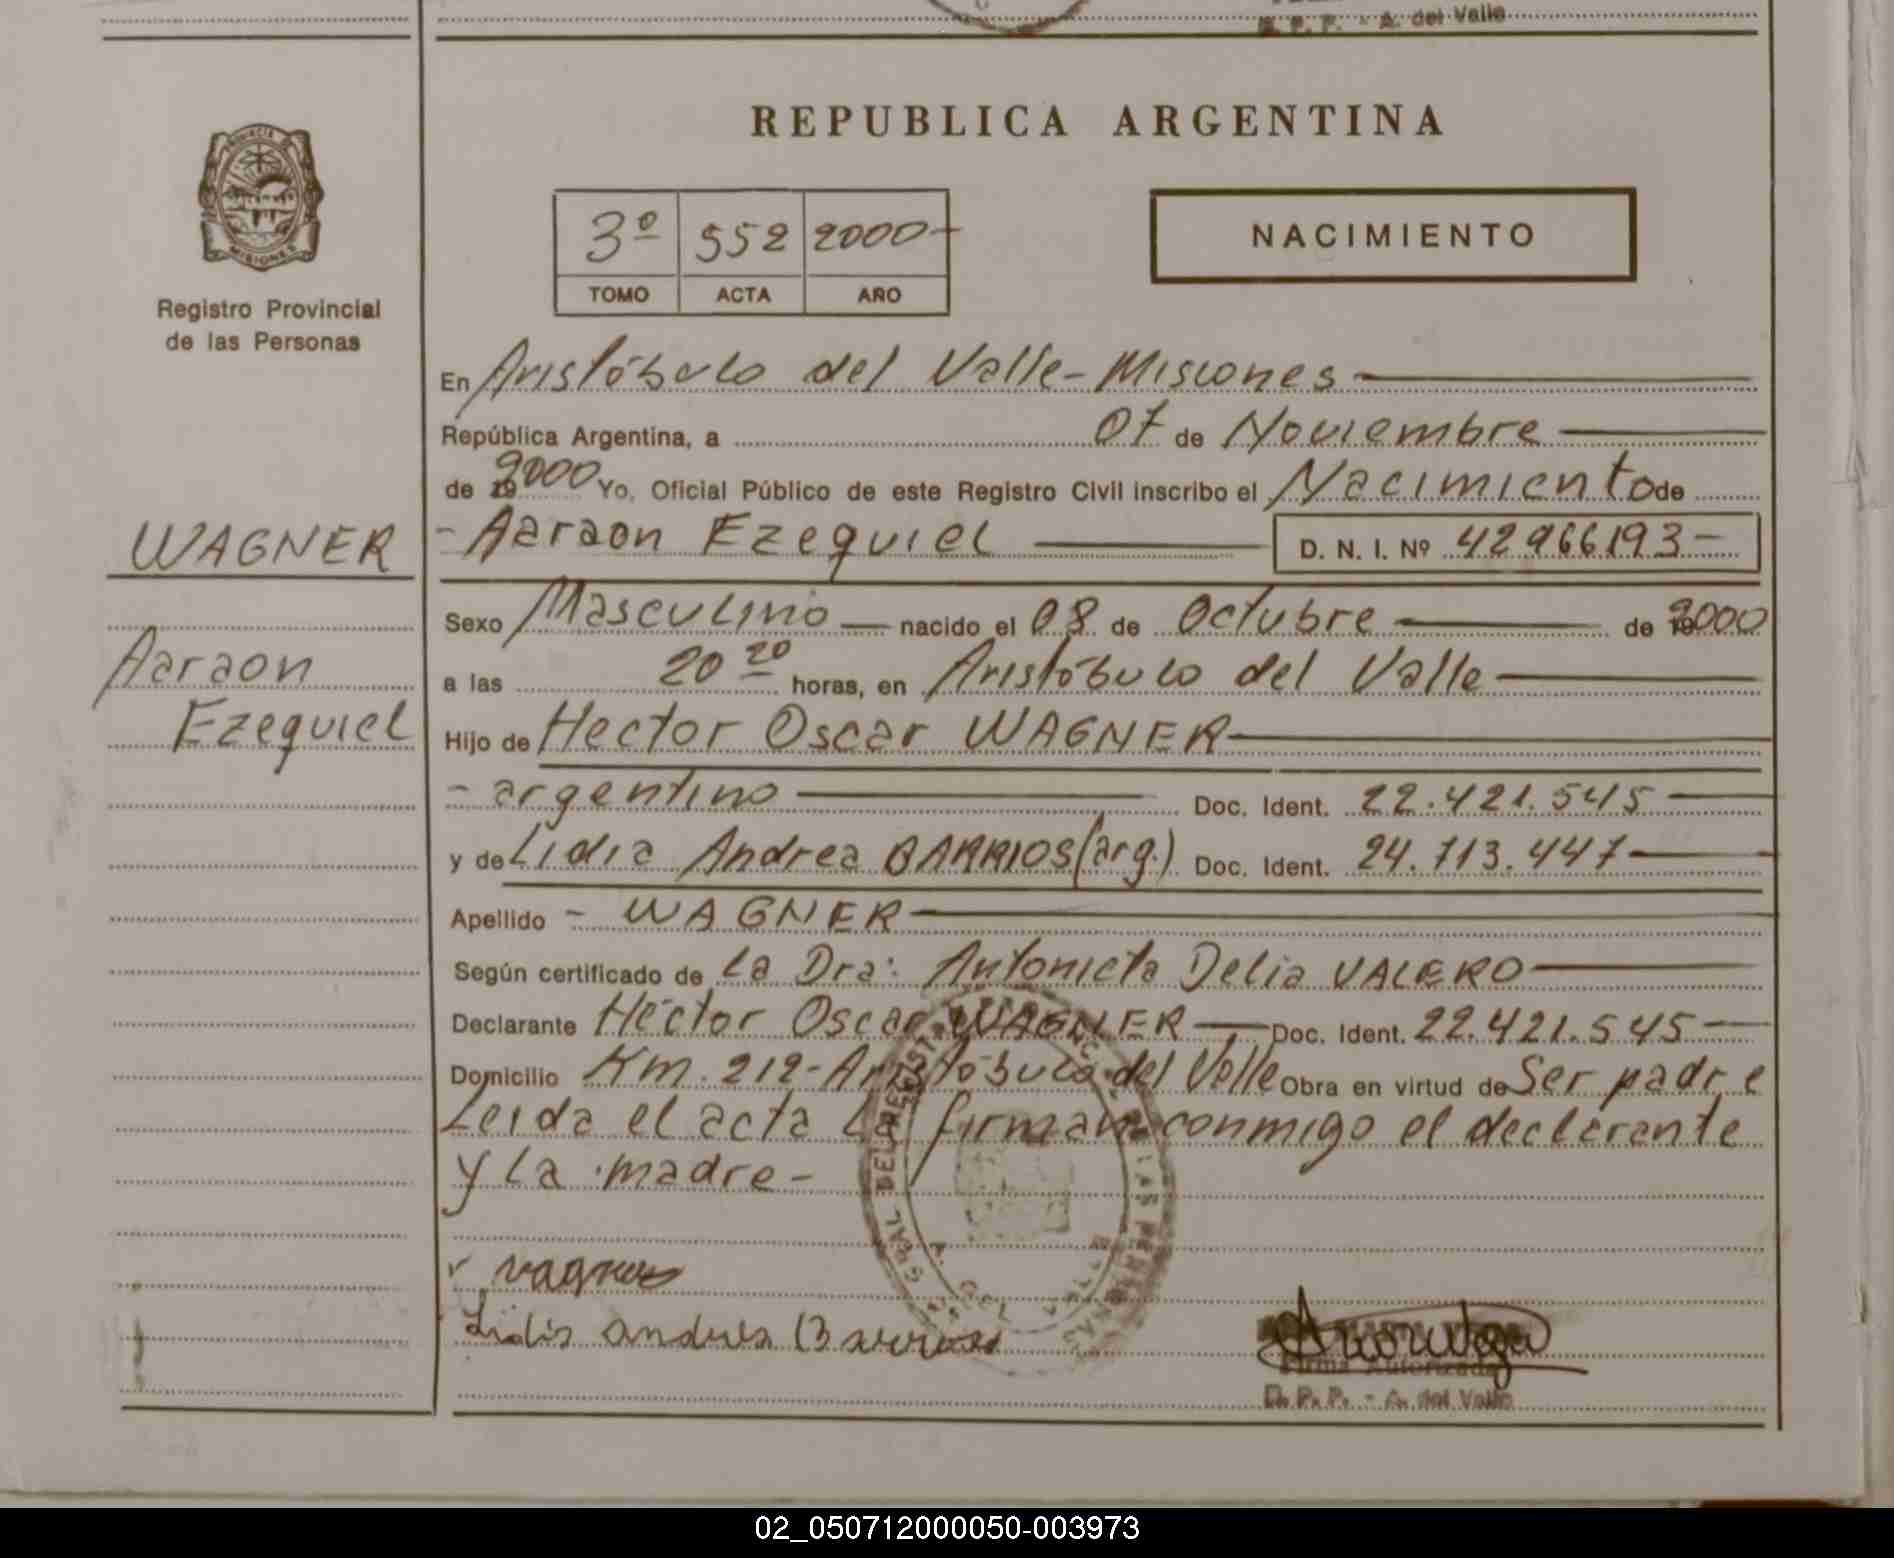 D. P. P. - A. del Valle
REPUBLICA ARGENTINA
PROVINCIA DE
MISIONES
Registro Provincial
de las Personas
3º 552 2000-
TOMO ACTA AÑO
NACIMIENTO
En Aristóbulo del Valle-Misiones
República Argentina, a 07 de Noviembre
de 2000 Yo, Oficial Público de este Registro Civil inscribo el Nacimiento de
WAGNER
- Aaraon Ezequiel D. N. I. Nº 42966193-
Sexo Masculino nacido el 08 de Octubre de 2000
Aaraon
a las 20 20 horas, en Aristóbulo del Valle
Ezequiel
Hijo de Hector Oscar WAGNER
- argentino Doc. Ident. 22.421.545
y de Lidia Andrea BARRIOS (arg.) Doc. Ident. 24.713.447
Apellido - WAGNER
Según certificado de La Dra: Antonieta Delia VALERO
Declarante Héctor Oscar WAGNER Doc. Ident. 22.421.545
Domicilio Km. 212-Aristóbulo del Valle Obra en virtud de Ser padre
Leida el acta la firman conmigo el declarante
y la madre-
vagner
Lidia andrea Barrios
Firma Autorizada
D. P. P. - A. del Valle
02_050712000050-003973